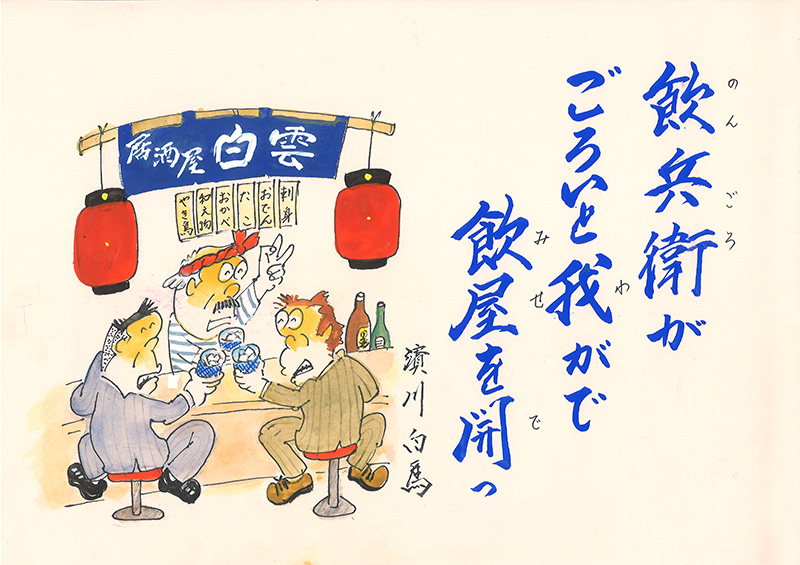 のんごろ
飲兵衛が
わ
ごろいと我がで
みせ で
飲屋を開っ
居酒屋 白雲
刺身
おでん
たこ
おかべ
和え物
やき鳥
濱川白馬